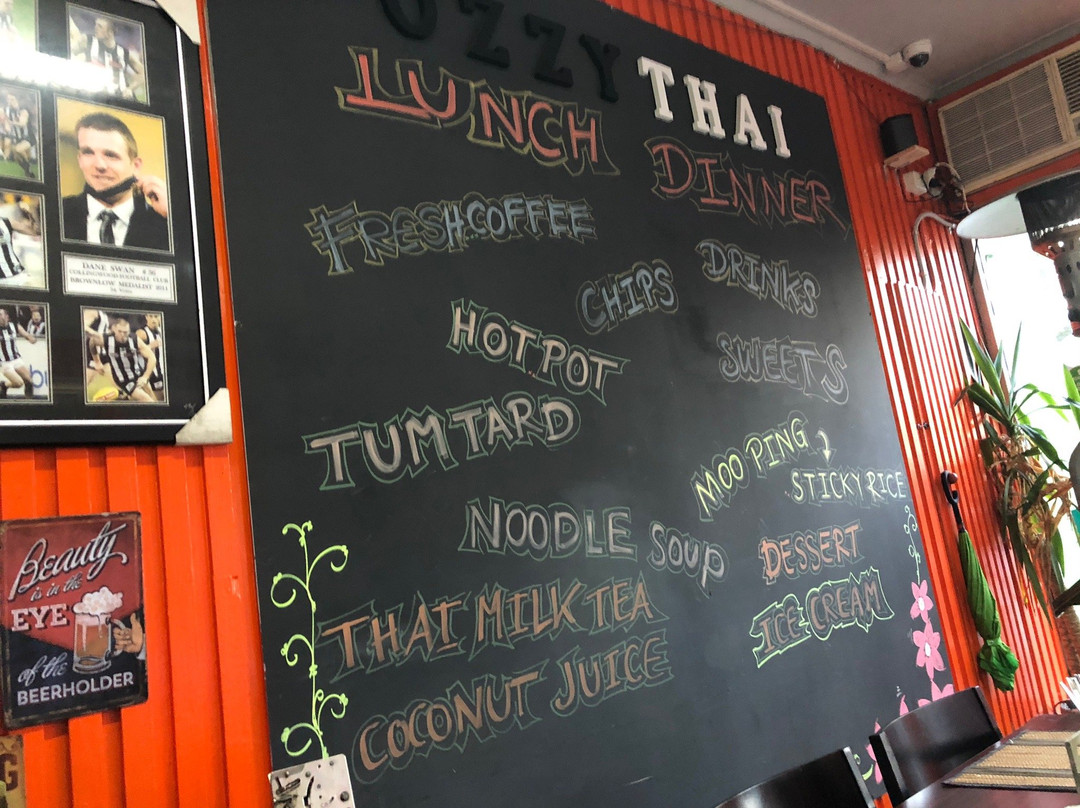 OZZY THAI
LUNCH
DINNER
FRESH COFFEE
DRINKS
CHIPS
HOT POT
SWEETS
TUM TARD
MOO PING
STICKY RICE
NOODLE SOUP
DESSERT
THAI MILK TEA
ICE-CREAM
COCONUT JUICE
DANE SWAN
COLLINGWOOD FOOTBALL CLUB
BROWNLOW MEDALIST 2011
Beauty
is in the
EYE
of the
BEERHOLDER
G